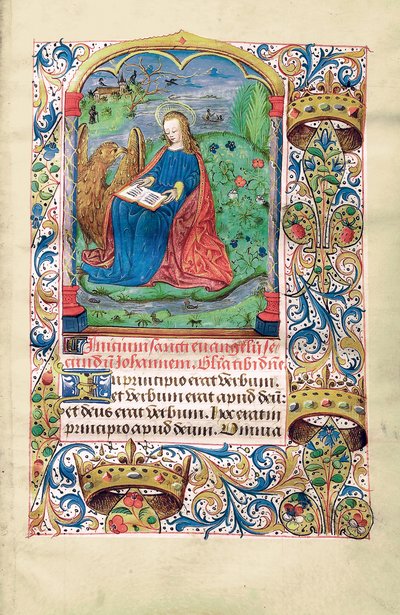 Initium sancti euangelii se
cundum Johannem. Gloria tibi dne
In principio erat verbum.
et verbum erat apud deū:
et deus erat verbum. Hoc erat in
principio apud deum. Omnia